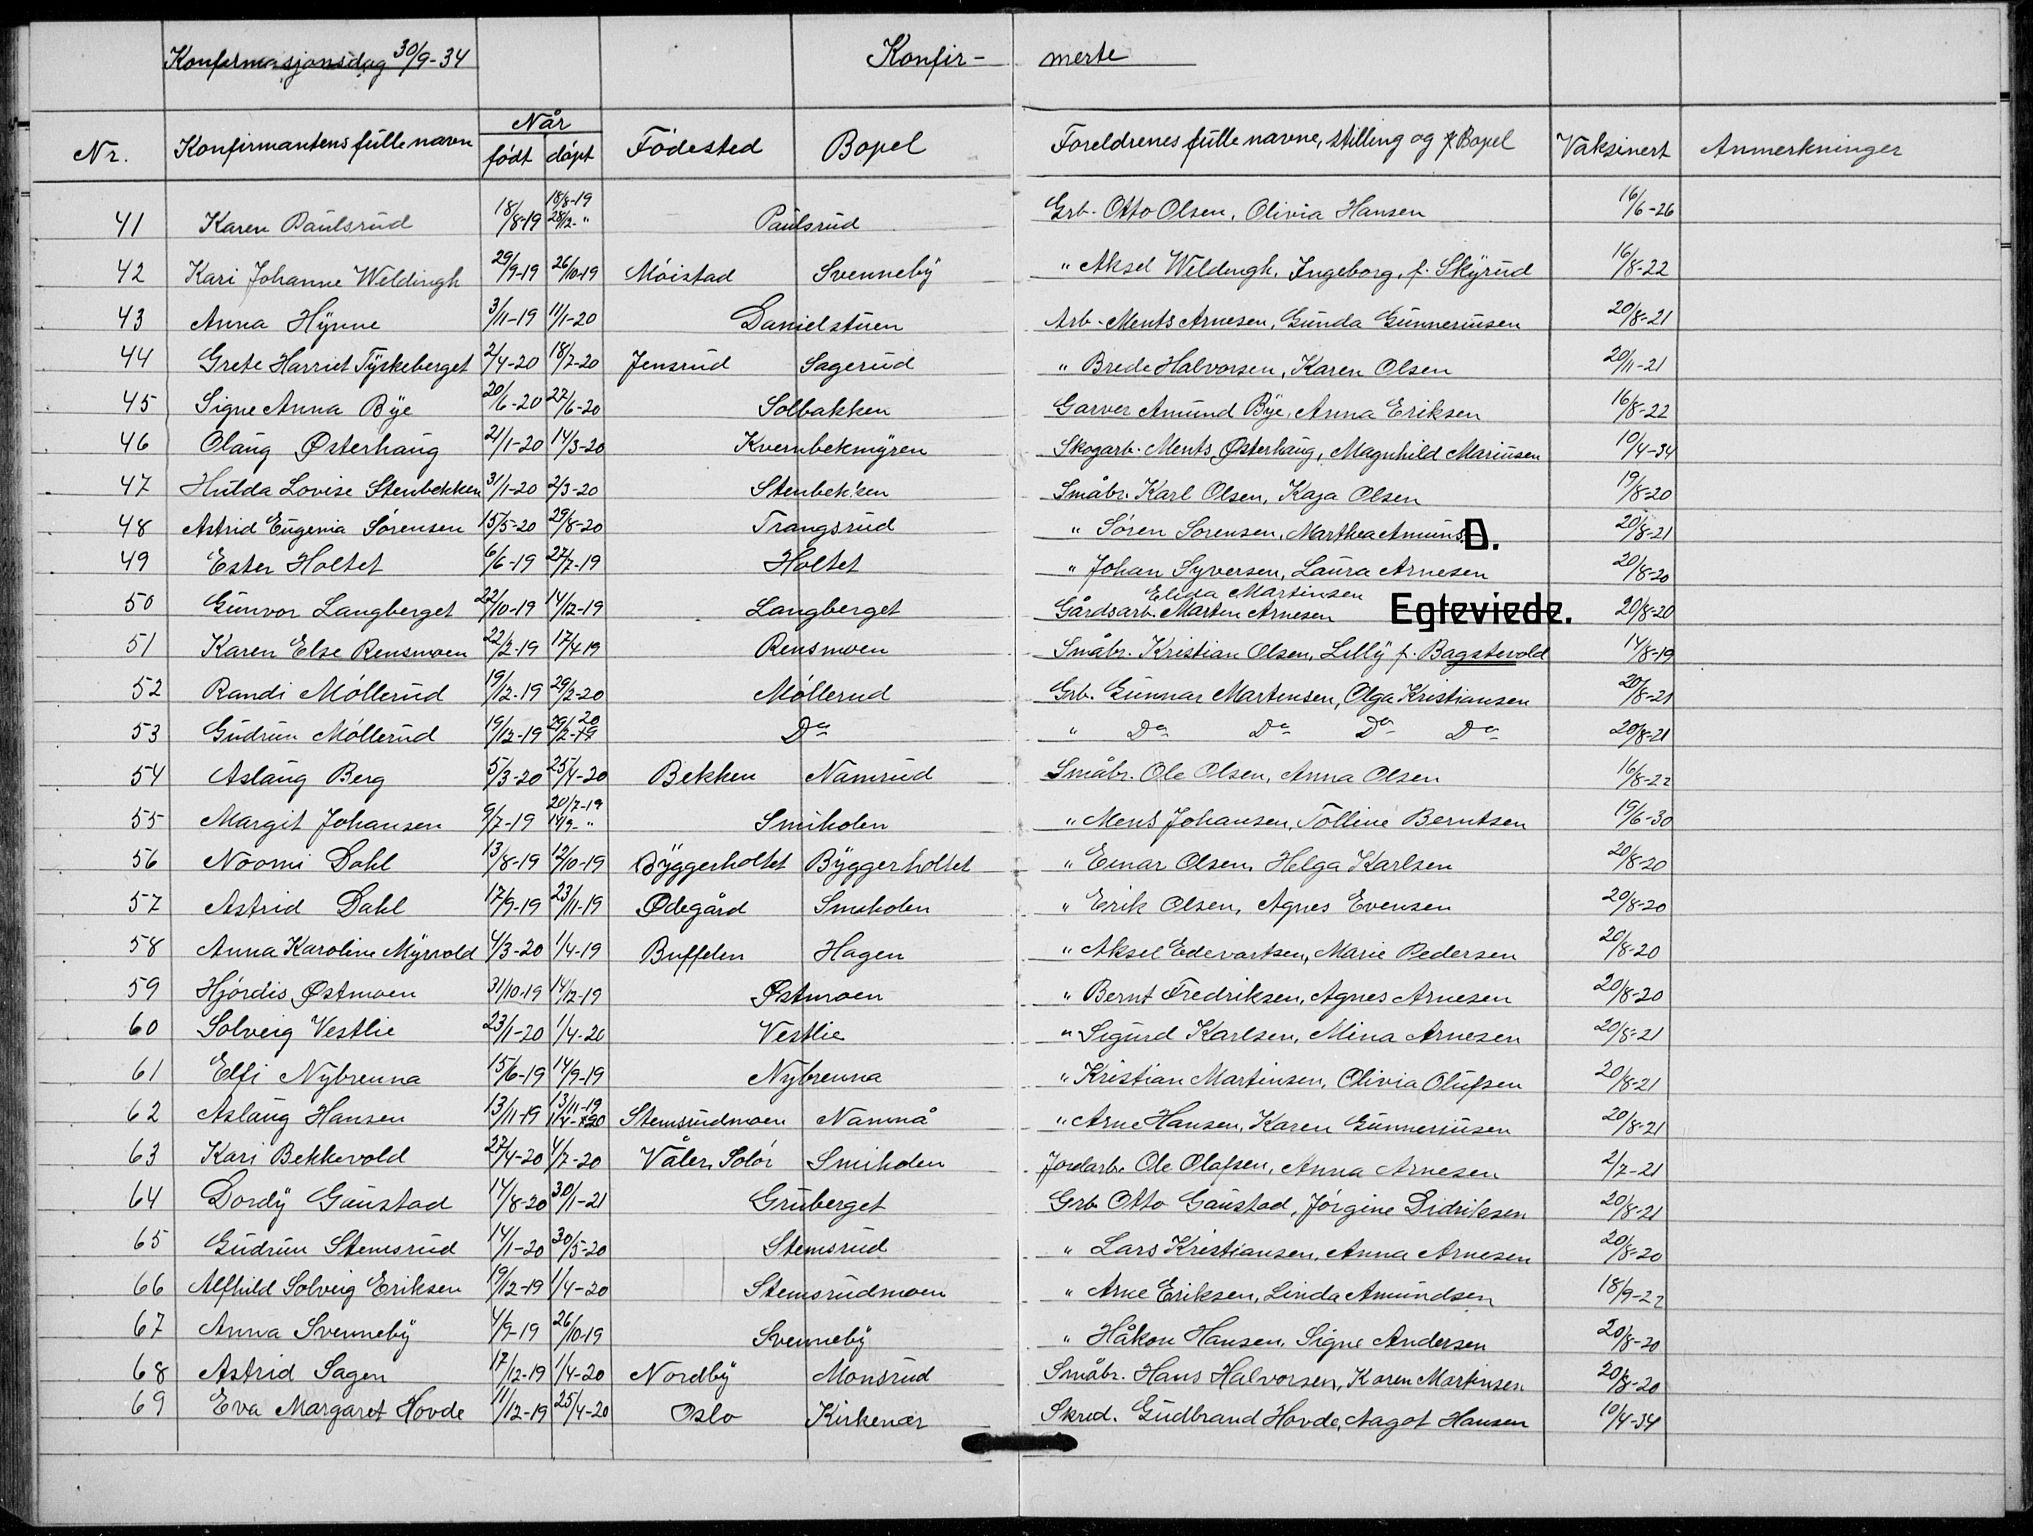 Konfirmasjonsdag 30/9-34 Konfir- merte
Nr. Konfirmantens fulle navn Når født døpt Födested Bopel Foreldrenes fulle navne, stilling og Bopel Vaksinert Anmerkninger
41 Karen Paulsrud 18/8-19 18/8-19 28/12-" Paulsrud Grb. Otto Olsen, Olivia Hansen 16/6-26
42 Kari Johanne Weldingh 29/9-19 26/10-19 Möistad Svenneby " Aksel Weldingh, Ingeborg, f. Skyrud 16/8-22
43 Anna Hynne 3/11-19 11/1-20 Danielstuen Arb. Ments Arnesen, Gunda Gunneriusen 20/8-21
44 Grete Harriet Tyskeberget 2/4-20 18/7-20 Jensrud Sagerud " Brede Halvorsen, Karen Olsen 20/11-21
45 Signe Anna Bye 20/6-20 27/6-20 Solbakken Garver Amund Bye, Anna Eriksen 16/8-22
46 Olaug Østerhaug 21/1-20 14/3-20 Kvernbekmyren Skogarb. Ments Østerhaug, Magnhild Mariusen 10/4-34
47 Hulda Lovise Stenbekken 31/1-20 2/3-20 Stenbekken Småbr. Karl Olsen, Kaja Olsen 19/8-20
48 Astrid Eugenia Sörensen 15/5-20 29/8-20 Trangsrud " Sören Sorensen, Marthea Amuns D. 20/8-21
49 Ester Holtet 6/6-19 27/7-19 Holtet " Johan Syversen, Laura Arnesen 20/8-20
Elida Martinsen
50 Gunvor Langberget 22/10-19 14/12-19 Langberget Gårdsarb. Marten Arnesen Egteviede. 20/8-20
51 Karen Else Rensmoen 22/2-19 17/4-19 Rensmoen Småbr. Kristian Olsen, Lilly f. Bagstevold 14/8-19
52 Randi Möllerud 19/12-19 29/2-20 Möllerud Grb. Gunnar Martensen, Olga Kristiansen 20/8-21
53 Gudrun Möllerud 19/12-19 29/2-20 Do " Do Do Do Do 20/8-21
54 Aslaug Berg 5/3-20 25/4-20 Bekken Namrud Småbr. Ole Olsen, Anna Olsen 16/8-22
55 Margit Johansen 9/7-19 20/7-19 14/9-" Smiholen " Ments Johansen, Tolline Berntsen 19/6-30
56 Noomi Dahl 13/8-19 12/10-19 Byggerholtet Byggerholtet " Einar Olsen, Helga Karlsen 20/8-20
57 Astrid Dahl 17/9-19 23/11-19 Ødegård Smiholen " Erik Olsen, Agnes Evensen 20/8-20
58 Anna Karoline Myrvold 4/3-20 1/4-19 Buffelen Hagen " Aksel Edevartsen, Marie Pedersen 20/8-20
59 Hjördis Østmoen 31/10-19 14/12-19 Østmoen " Bernt Fredriksen, Agnes Arnesen 20/8-20
60 Solveig Vestlie 23/1-20 1/4-20 Vestlie " Sigurd Karlsen, Mina Arnesen 20/8-21
61 Elfi Nybrenna 15/6-19 14/9-19 Nybrenna " Kristian Martinsen, Olivia Olufsen 20/8-21
62 Aslaug Hansen 13/11-19 13/11-19 1/4-20 Stemsrudmoen Namnå " Arne Hansen, Karen Gunneriusen 20/8-21
63 Kari Bekkevold 27/4-20 4/7-20 Våler, Solör Smiholen Jordarb. Ole Olafsen, Anna Arnesen 2/7-21
64 Dordy Gaustad 14/8-20 30/1-21 Gruberget Grb Otto Gaustad, Jörgine Didriksen 20/8-21
65 Gudrun Stemsrud 14/1-20 30/5-20 Stemsrud " Lars Kristiansen, Anna Arnesen 20/8-20
66 Alfhild Solveig Eriksen 19/12-19 1/4-20 Stemsrudmoen " Arne Eriksen, Linda Amundsen 18/9-22
67 Anna Svenneby 4/9-19 26/10-19 Svenneby " Håkon Hansen, Signe Andersen 20/8-20
68 Astrid Sagen 17/12-19 1/4-20 Nordby Monsrud Småbr. Hans Halvorsen, Karen Martinsen 20/8-20
69 Eva Margaret Hovde 11/12-19 25/4-20 Oslo Kirkenær Skred. Gudbrand Hovde, Aagot Hansen 10/4-34